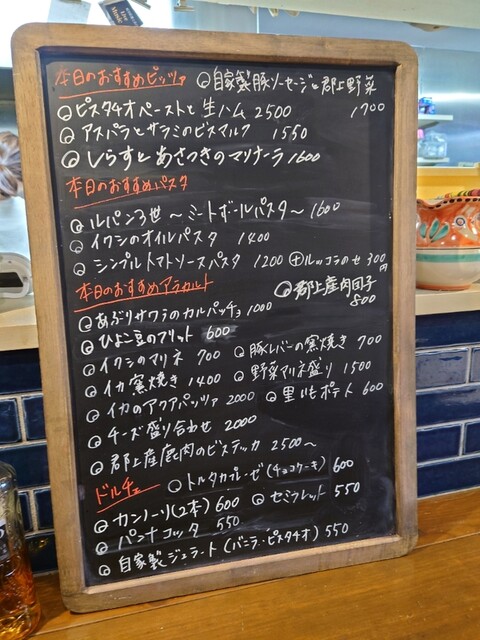 本日のおすすめピッツァ ◎自家製豚ソーセージと郡上野菜 1700
◎ピスタチオペーストと生ハム 2500
◎アスパラとサラミのビスマルク 1550
◎しらすとあさつきのマリナーラ 1600
本日のおすすめパスタ
◎ルパン3世〜ミートボールパスタ〜 1600
◎イワシのオイルパスタ 1400
◎シンプルトマトソースパスタ 1200 ⊕ルッコラのせ 300円
本日のおすすめアラカルト
◎郡上産肉団子 800
◎あぶりサワラのカルパッチョ 1000
◎ひよこ豆のフリット 600
◎イワシのマリネ 700 ◎豚レバーの窯焼き 700
◎イカ窯焼き 1400 ◎野菜マリネ盛り 1500
◎イカのアクアパッツァ 2000 ◎里いもポテト 600
◎チーズ盛り合わせ 2000
◎郡上産鹿肉のビステッカ 2500〜
ドルチェ ◎トルタカプレーゼ(チョコケーキ) 600
◎カンノーリ(2本) 600 ◎セミフレット 550
◎パンナコッタ 550
◎自家製ジェラート(バニラ・ピスタチオ) 550